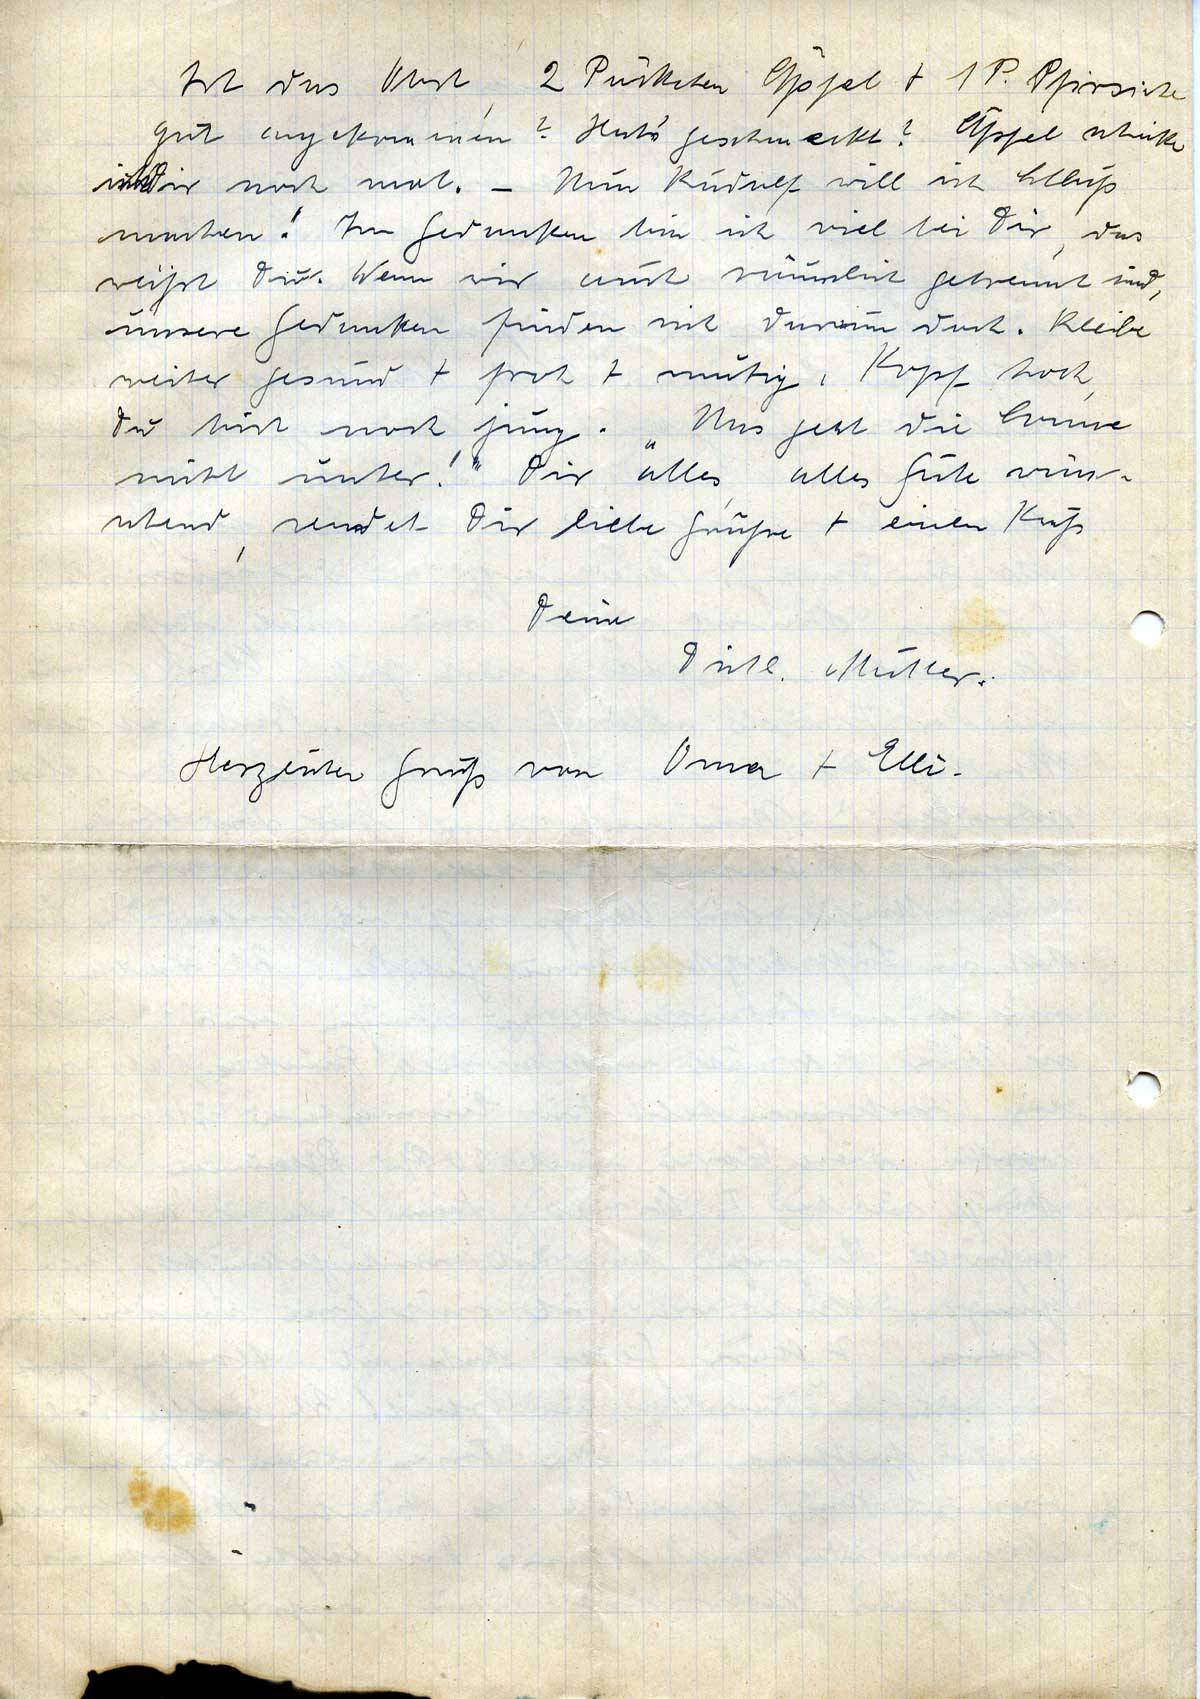 Ist das Obst, 2 Päckchen Äpfel + 1 P. Pfirsiche
gut angekommen? Hat's geschmeckt? Äpfel schicke
ich Dir noch mal. – Nun Rudolf will ich Schluß
machen! In Gedanken bin ich viel bei Dir, das
weißt Du. Wenn wir auch räumlich getrennt sind,
unsere Gedanken finden sich darum doch. Bleibe
weiter gesund + froh + mutig, Kopf hoch,
Du bist noch jung. „Uns geht die Sonne
nicht unter!" Dir alles, alles Gute wün-
schend, sendet Dir liebe Grüße + einen Kuß
Deine
Dichl. Mutter.
Herzlichen Gruß von Oma + Elli.